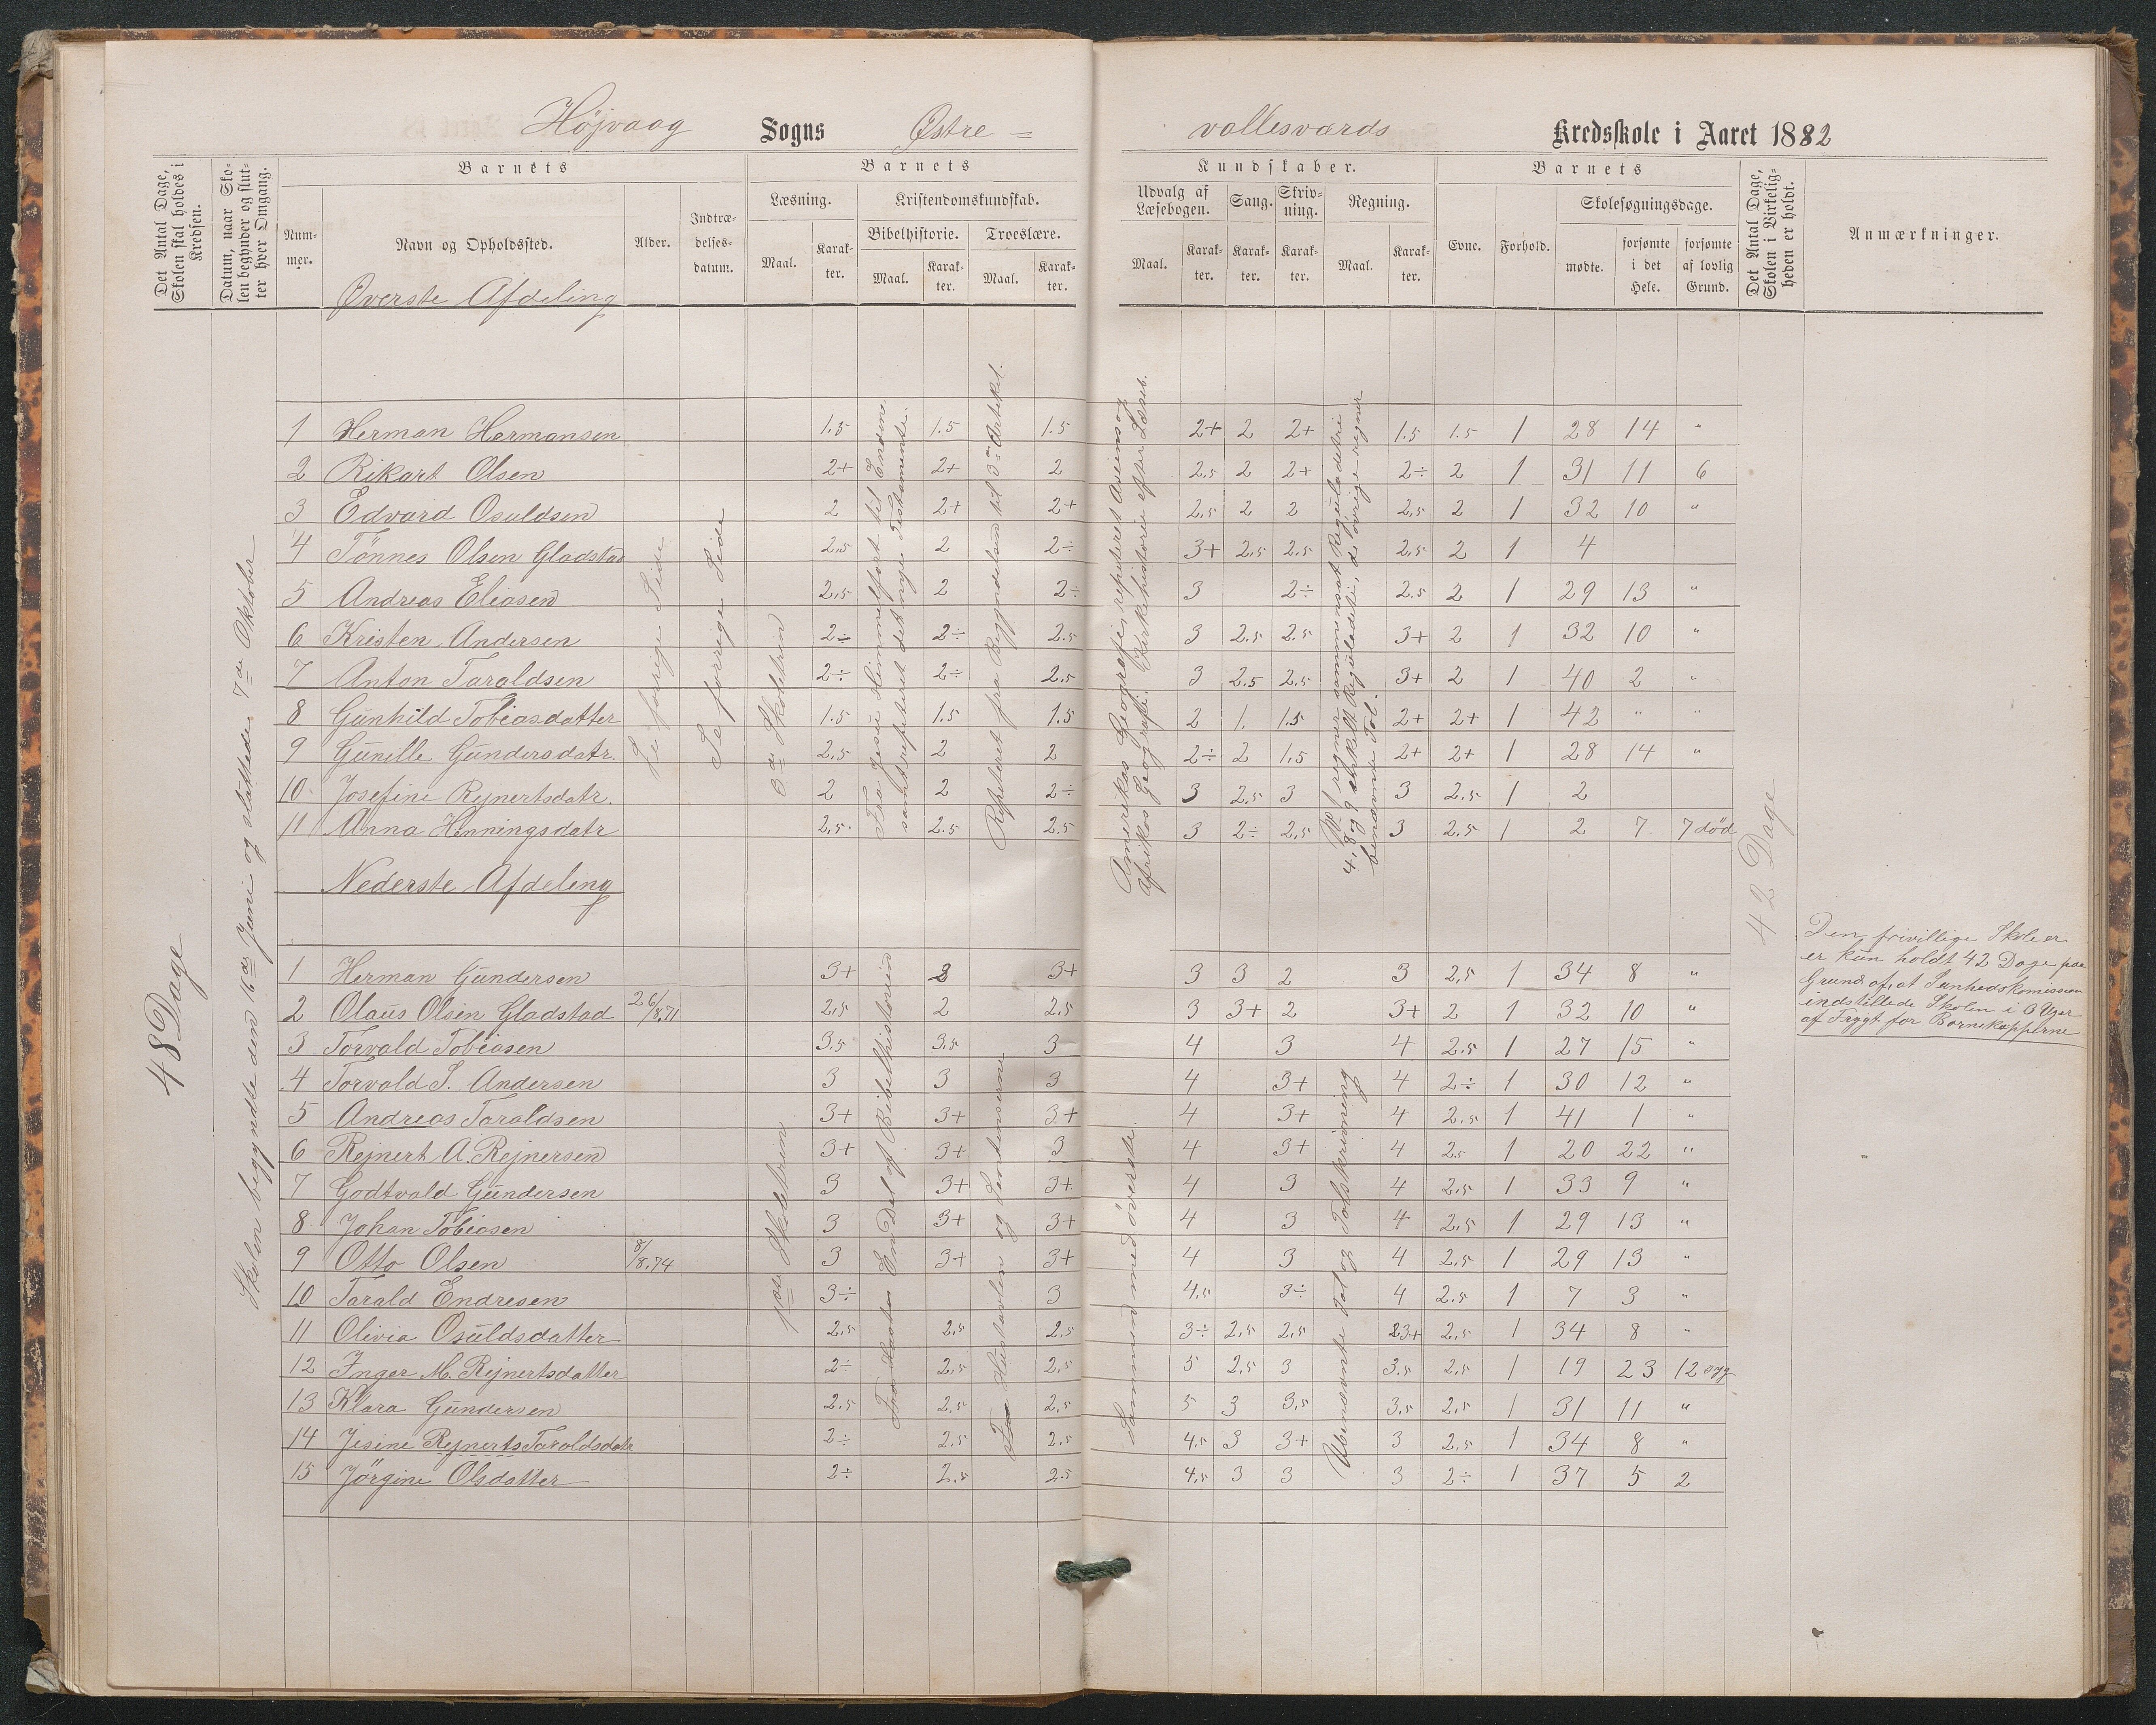 Højvaag Sogns Østre = vollesværds Kredsskole i Aaret 1882
Det Antal Dage, Skolen skal holdes i Kredsen.
Datum, naar Skolen begynder og slutter hver Omgang.
Barnets
Nummer.
Navn og Opholdssted.
Alder.
Indtrædelsesdatum.
Barnets
Læsning.
Maal.
Karakter.
Kristendomskundskab.
Bibelhistorie.
Maal.
Karakter.
Troeslære.
Maal.
Karakter.
Kundskaber.
Udvalg af Læsebogen.
Maal.
Karakter.
Sang.
Karakter.
Skrivning.
Karakter.
Regning.
Maal.
Karakter.
Barnets
Evne.
Forhold.
Skolesøgningsdage.
mødte.
forsømte i det Hele.
forsømte af lovlig Grund.
Det Antal Dage, Skolen i Virkeligheden er holdt.
Anmærkninger.
Øverste Afdeling
48 Dage
Skolen begyndte den 16de Juni og sluttede 7de Oktober
Se forrige Side
Se forrige Side
3de Skoletrin
Fra Jesu Himmelfart til Enden
samt repeteret det nye Testamente.
Repeteret fra Begyndelsen til 3die Artikel.
Amerikas Geografi, repeteret Asiens og
Afrikas Geografi. Kirkehistorie efter Læseb.
No 1 regner sammensat Reguladetri
4, 8 og 9 enkelt Reguladetri, de øvrige regner
benævnte Tal.
42 Dage
1 Herman Hermansen 1.5 1.5 1.5 2+ 2 2+ 1.5 1.5 1 28 14 "
2 Rikart Olsen 2+ 2+ 2 2.5 2 2+ 2÷ 2 1 31 11 6
3 Edvard Osuldsen 2 2+ 2+ 2.5 2 2 2.5 2 1 32 10 "
4 Tönnes Olsen Gladstad 2.5 2 2÷ 3+ 2.5 2.5 2.5 2 1 4
5 Andreas Eleasen 2.5 2 2÷ 3 2÷ 2.5 2 1 29 13 "
6 Kristen Andersen 2÷ 2÷ 2.5 3 2.5 2.5 3+ 2 1 32 10 "
7 Anton Taraldsen 2÷ 2÷ 2.5 3 2.5 2.5 3+ 2 1 40 2 "
8 Gunhild Tobiasdatter 1.5 1.5 1.5 2 1. 1.5 2+ 2+ 1 42 " "
9 Gunille Gundersdatr. 2.5 2 2 2÷ 2 1.5 2+ 2+ 1 28 14 "
10 Josefine Rejnertsdatr. 2 2 2÷ 3 2.5 3 3 2.5 1 2
11 Anna Henningsdatr 2.5 2.5 2.5 3 2÷ 2.5 3 2.5 1 2 7 7 död
Nederste Afdeling
1ste Skoletrin
En Del af Bibelhistorien
Hustavlen og Sentenserne
Sammen med øverste Afd.
Ubenævnte Tal og Talskrivning
1 Herman Gundersen 3+ 3 3+ 3 3 2 3 2.5 1 34 8 "
2 Olaus Olsen Gladstad 26/8.71 2.5 2 2.5 3 3+ 2 3+ 2 1 32 10 "
3 Torvald Tobiasen 3.5 3.5 3 4 3 4 2.5 1 27 15 "
4 Torvald S. Andersen 3 3 3 4 3+ 4 2÷ 1 30 12 "
5 Andreas Taraldsen 3+ 3+ 3+ 4 3+ 4 2.5 1 41 1 "
6 Rejnert A. Rejnersen 3+ 3+ 3 4 3+ 4 2.5 1 20 22 "
7 Godtvald Gundersen 3 3+ 3+ 4 3 4 2.5 1 33 9 "
8 Johan Tobiasen 3 3+ 3+ 4 3 4 2.5 1 29 13 "
9 Otto Olsen 8/8.74 3 3+ 3+ 4 3 4 2.5 1 29 13 "
10 Tarald Endresen 3÷ 3 4.5 3÷ 4 2.5 1 7 3 "
11 Olivia Osuldsdatter 2.5 2.5 2.5 3÷ 2.5 2.5 3+ 2.5 1 34 8 "
12 Inger M. Rejnertsdatter 2÷ 2.5 2.5 5 2.5 3 3.5 2.5 1 19 23 12 syg
13 Klara Gundersen 2.5 2.5 2.5 5 3 3.5 3.5 2.5 1 31 11 "
14 Jesine Rejnerts Taraldsdatr 2÷ 2.5 2.5 4.5 3 3+ 3 2.5 1 34 8 "
15 Jörgine Olsdatter 2÷ 2.5 2.5 4.5 3 3 3 2÷ 1 37 5 2
Den frivillige Skole er
er kun holdt 42 Dage paa
Grund af, at Sunhedskomission
indstillede Skolen i 6 Uger
af Frygt for Børnekopperne